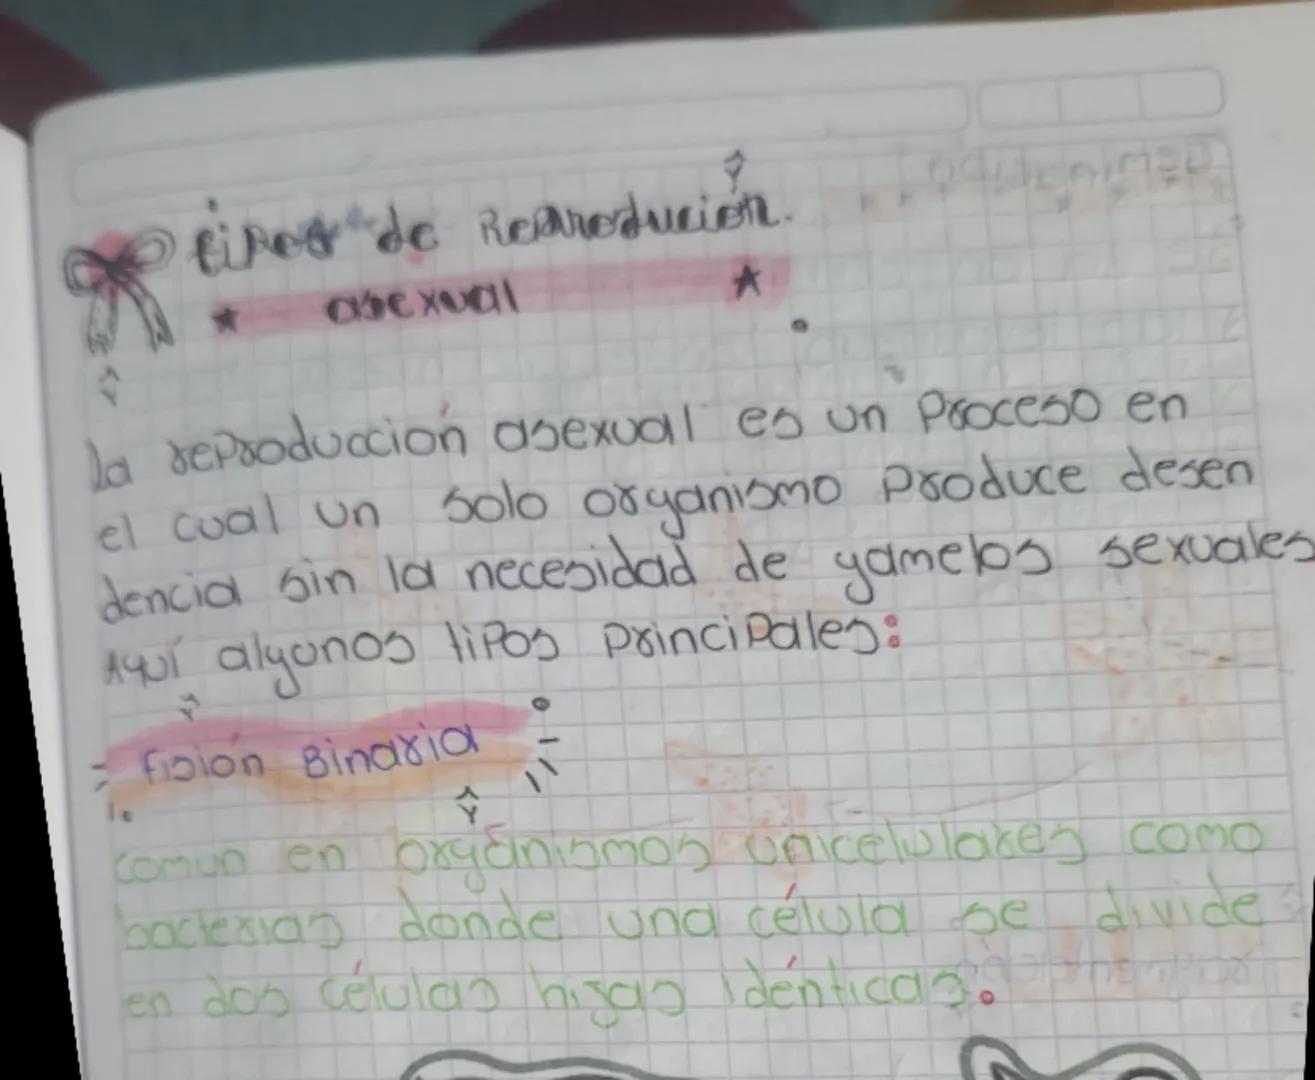 tipos de Reproducion.
asexual
la reproduccion asexual es un Proceso en
el cual un solo organismo Produce desen
dencia sin la necesidad de gametos sexuales
Aquí algunos tipos principales:
fision Binaria
comun en organismos unicelulares como
bacterias donde una célula se divide
en dos células hijas idénticas.